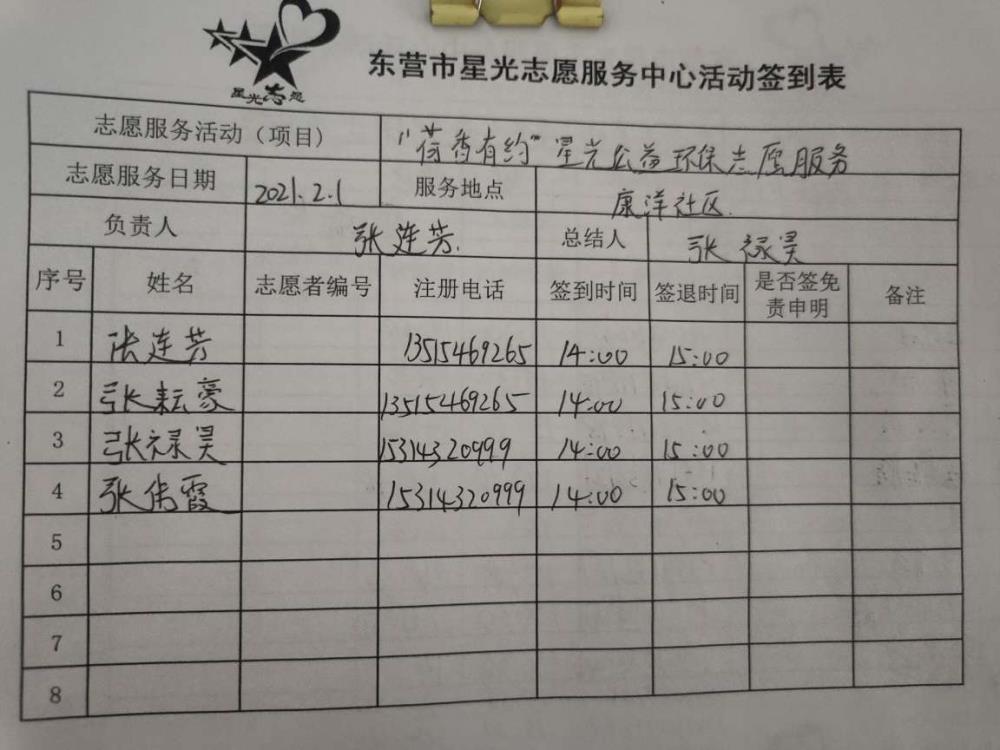 星光志愿
东营市星光志愿服务中心活动签到表
志愿服务活动（项目） “荷香有约”星光公益环保志愿服务
志愿服务日期 2021.2.1 服务地点 康洋社区.
负责人 张连芳. 总结人 张禄昊
序号 姓名 志愿者编号 注册电话 签到时间 签退时间 是否签免责申明 备注
1 张连芳 13515469265 14:00 15:00
2 张耘豪 13515469265 14:00 15:00
3 张禄昊 15314320999 14:00 15:00
4 张伟霞 15314320999 14:00 15:00
5
6
7
8